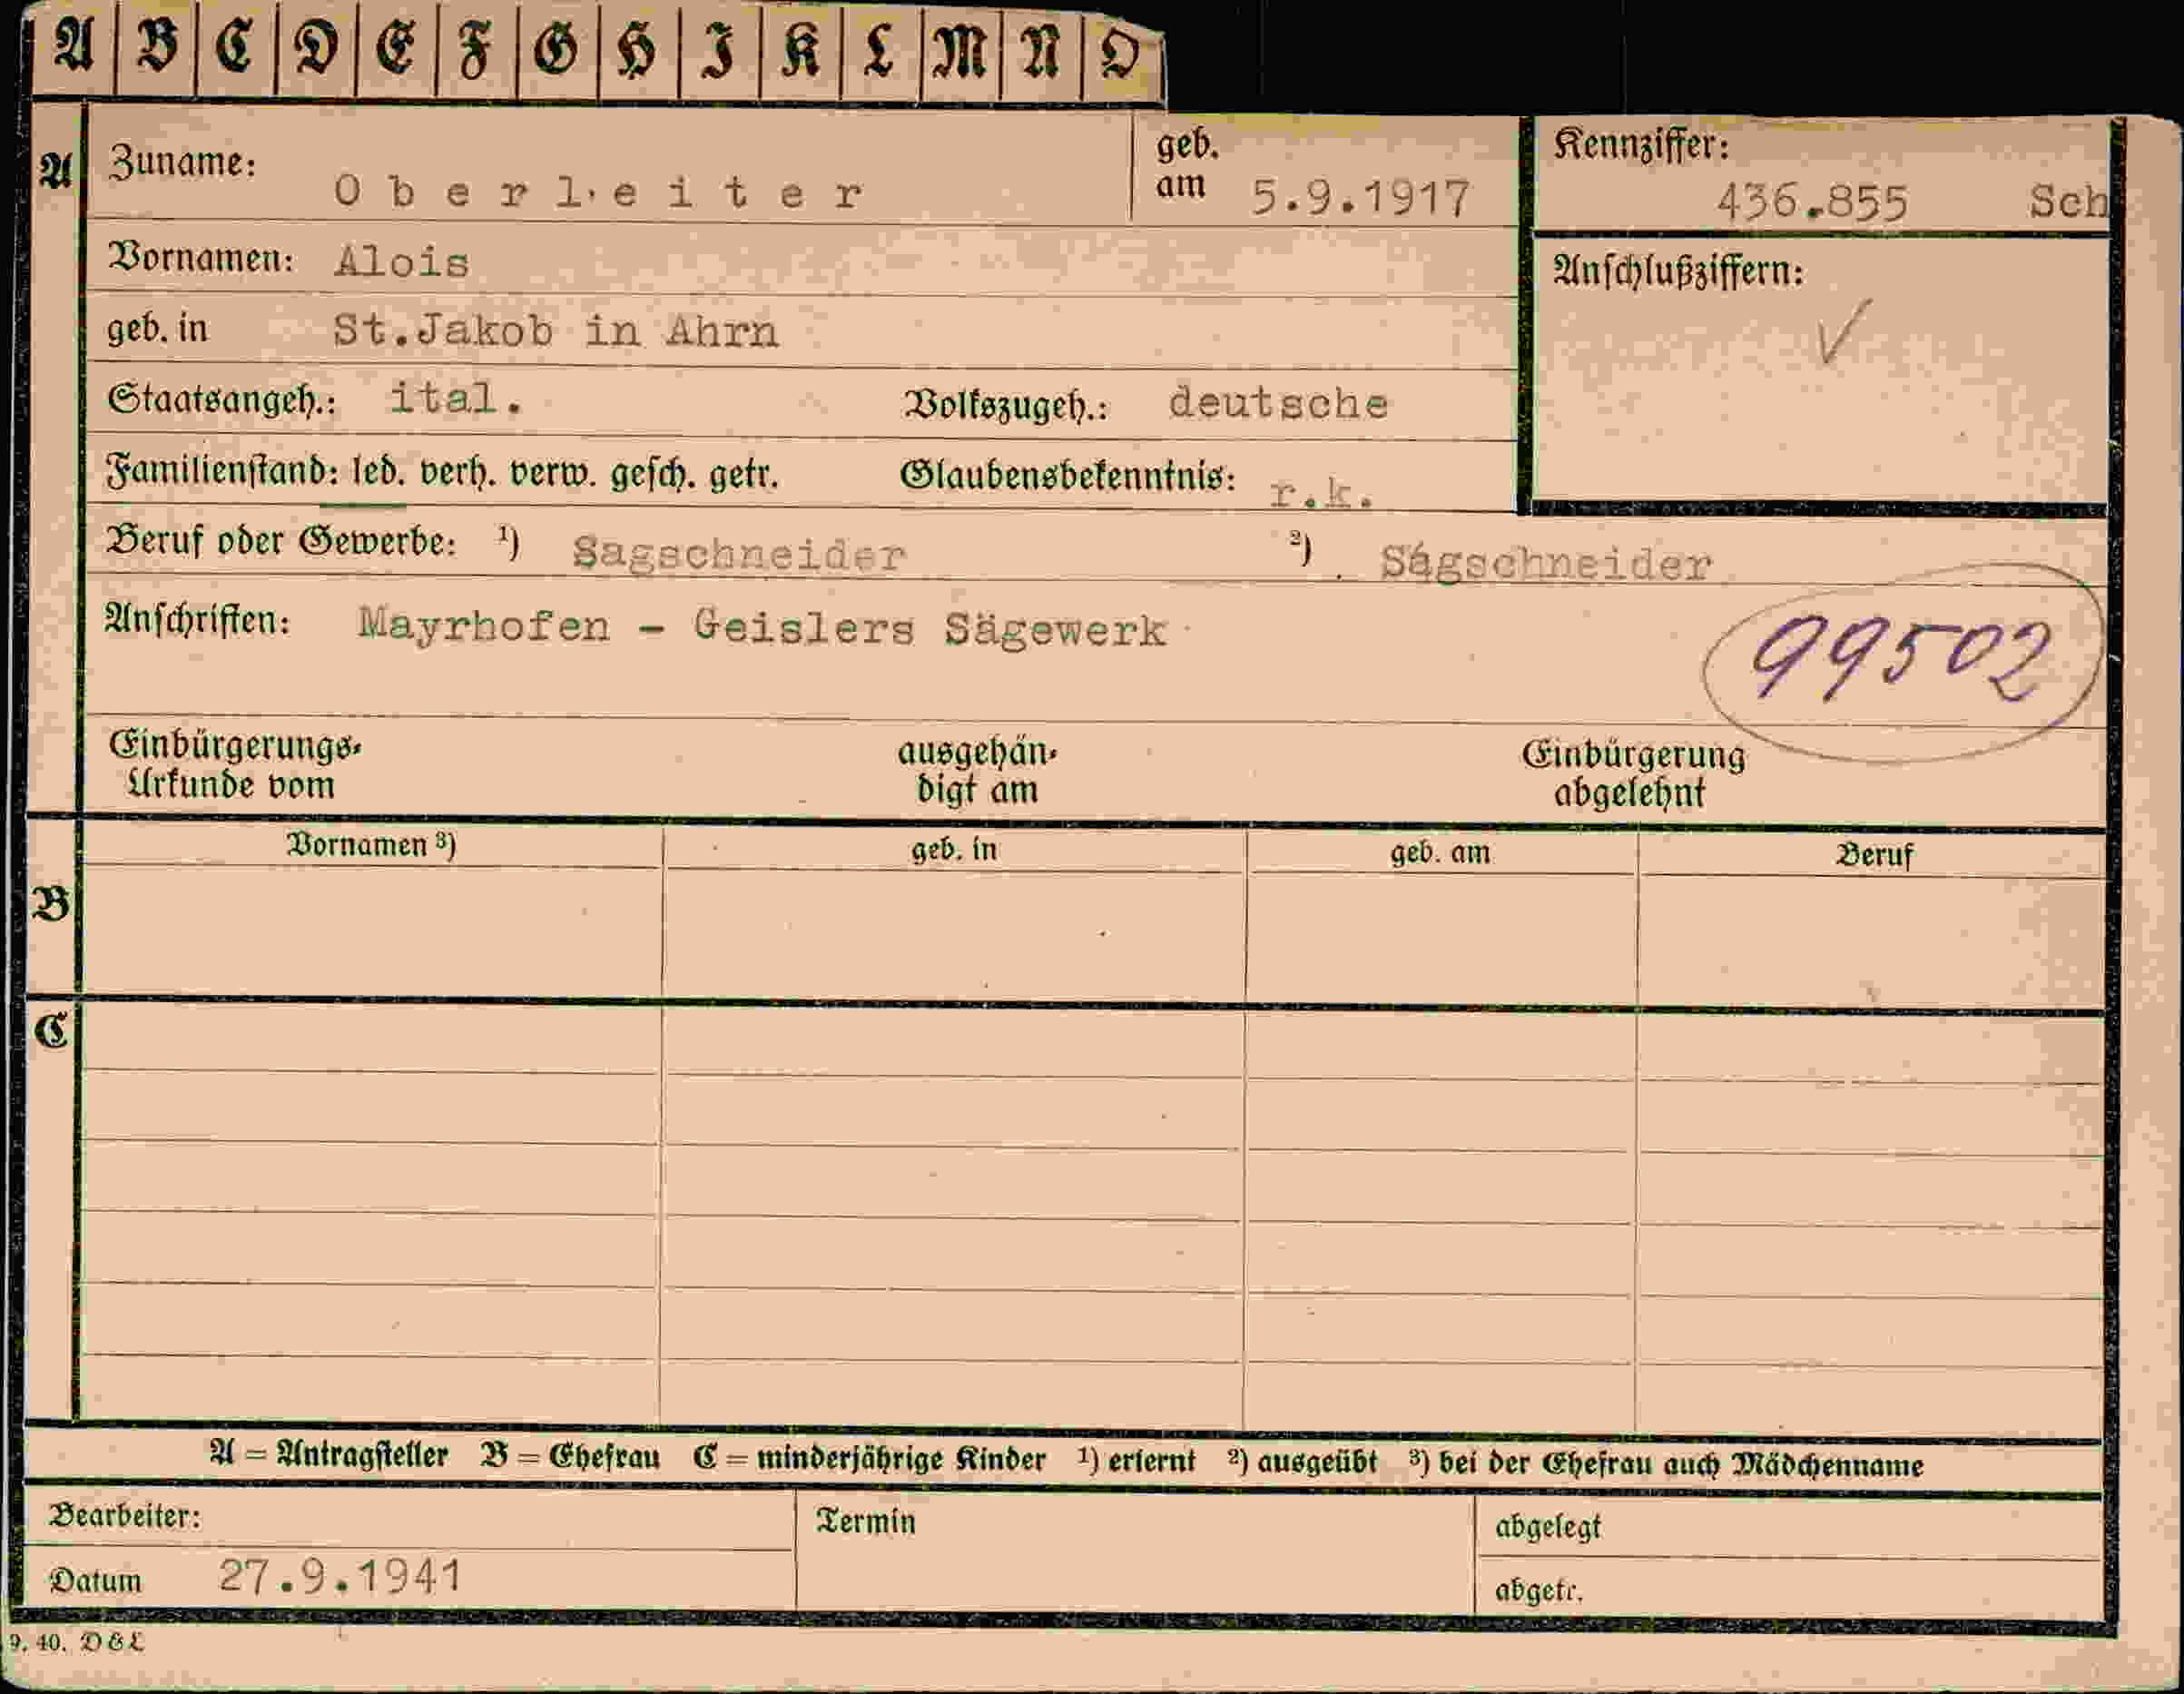 A B C D E F G H I K L M N O
A Zuname: Oberleiter geb. am 5.9.1917 Kennziffer: 436.855 Sch
Vornamen: Alois Anschlußziffern:
geb. in St.Jakob in Ahrn
Staatsangeh.: ital. Volkszugeh.: deutsche
Familienstand: led. verh. verw. gesch. getr. Glaubensbekenntnis: r.k.
Beruf oder Gewerbe: 1) Sagschneider 2) Sagschneider
Anschriften: Mayrhofen - Geislers Sägewerk
99502
Einbürgerungs- ausgehän- Einbürgerung
Urkunde vom digt am abgelehnt
Vornamen 3) geb. in geb. am Beruf
B
C
A = Antragsteller B = Ehefrau C = minderjährige Kinder 1) erlernt 2) ausgeübt 3) bei der Ehefrau auch Mädchenname
Bearbeiter: Termin abgelegt
Datum 27.9.1941 abgetr.
9. 40. D & L